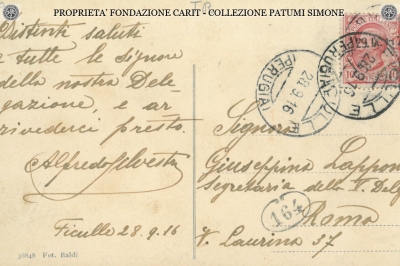 PROPRIETA' FONDAZIONE CARIT - COLLEZIONE PATUMI SIMONE
Distinti saluti
a tutte le signore
della nostra Dele
gazione, e ar
rivederci presto.
Alfredo Silvestri
Ficulle 28.9.16
30848 Fot. Baldi
28.9.16
(PERUGIA)
Signora
Giuseppina Lapponi
Segretaria della
Roma
V. Laurina 37
164